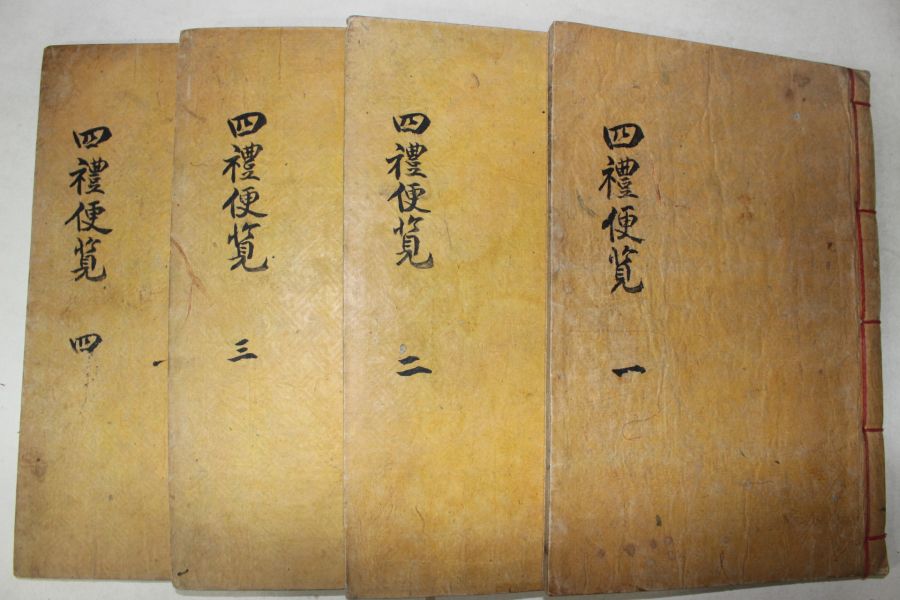 四禮便覧 一
四禮便覧 二
四禮便覧 三
四禮便覧 四